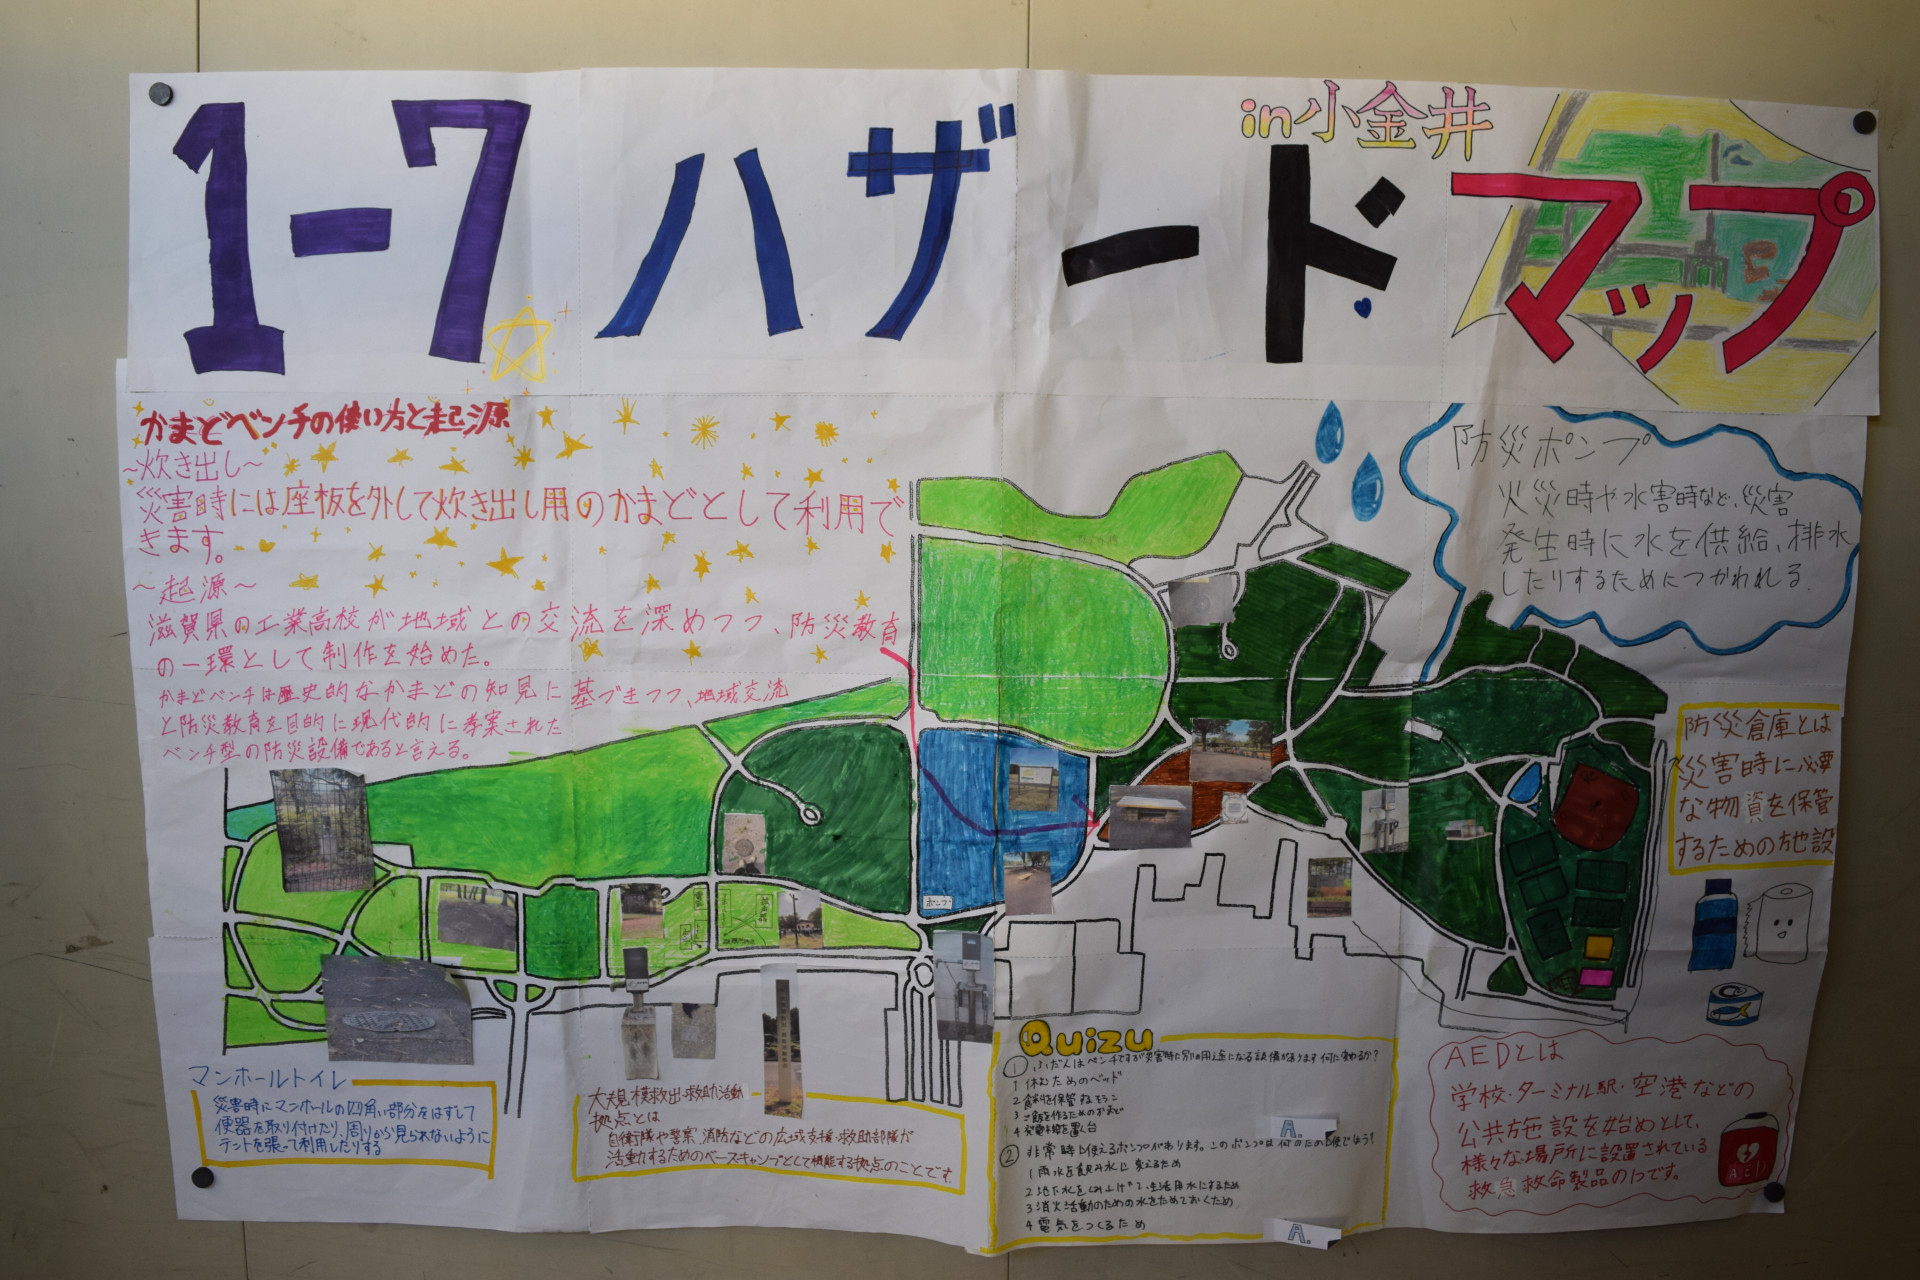 1-7 ハザードマップ
in小金井
かまどベンチの使い方と起源
~炊き出し~
災害時には座板を外して炊き出し用のかまどとして利用で
きます。
~起源~
滋賀県の工業高校が地域との交流を深めつつ、防災教育
の一環として制作を始めた。
かまどベンチは歴史的なかまどの知見に基づきつつ、地域交流
と防災教育を目的に現代的に考案された
ベンチ型の防災設備であると言える。
防災ポンプ
火災時や水害時など、災害
発生時に水を供給、排水
したりするためにつかわれる.
防災倉庫とは
災害時に必要
な物資を保管
するための施設
ポンプ
マンホールトイレ
災害時にマンホールの四角い部分をはずして
便器を取り付けたり、周りから見られないように
テントを張って利用したりする
大規模救出・救助活動
拠点とは
自衛隊や警察、消防などの広域支援・救助部隊が
活動するためのベースキャンプとして機能する拠点のことです.
Quizu
① ふだんはベンチですが災害時に別の用途になる設備があります何に変わるか?
1 休むためのベッド
2 食料を保管するそうこ
3 ご飯を作るためのかまど
4 発電機を置く台
A.
② 非常時に使えるポンプがあります。このポンプは何のために使でしょう!
1 雨水を飲み水に変えるため
2 地下水をくみ上げて、生活用水にするため
3 消火活動のための水をためておくため
4 電気をつくるため
A.
AEDとは
学校・ターミナル駅・空港などの
公共施設を始めとして、
様々な場所に設置されている
救急救命製品の1つです。
AED